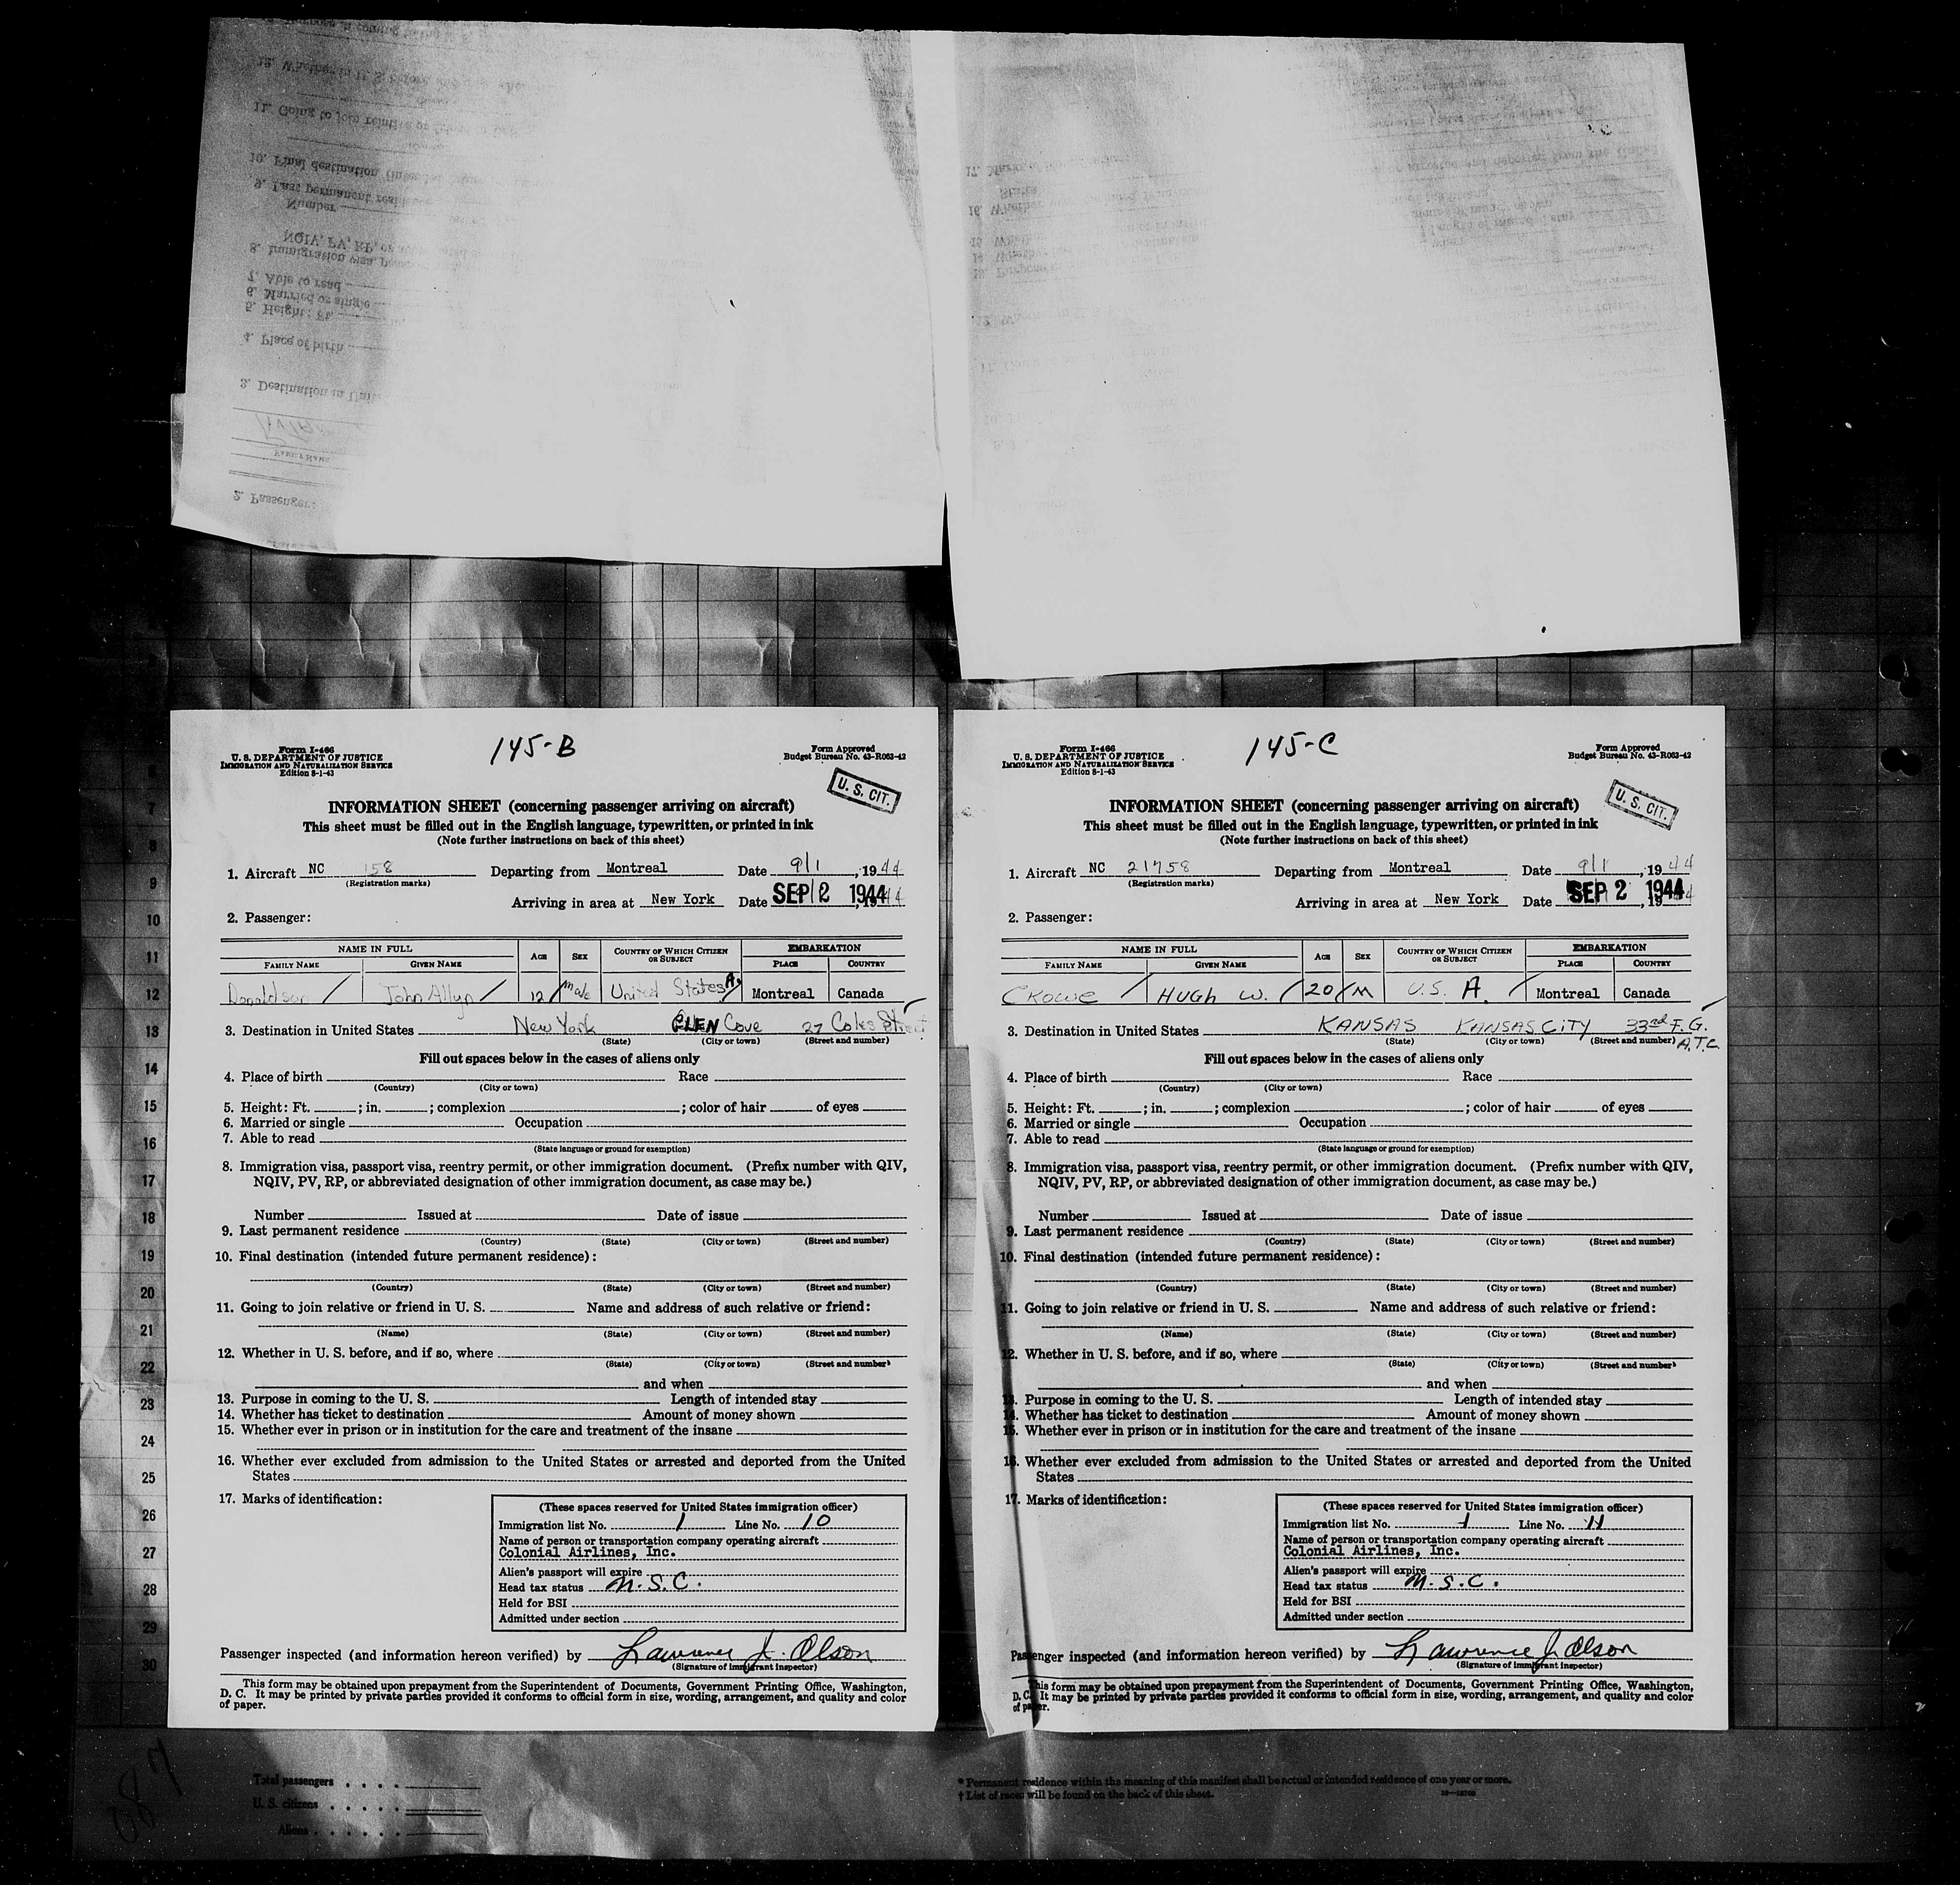 12. Whether in U. S. before, and if so, where
11. Going to join relative or friend in U. S.
10. Final destination (intended future
9. Last permanent
Number
NQIV, PV, RP, or
8. Immigration visa,
7. Able to read
6. Married or single
5. Height: Ft.
4. Place of birth
3. Destination in Unit
FAMILY NAME
2. Passenger:
17. Marks of
States
16. Whether
arrested and deported from the United
15. Wheth
14. Whether
13. Purpose
Length of intended stay
and when
7
8
9
10
11
12
13
14
15
16
17
18
19
20
21
22
23
24
25
26
27
28
29
30
Form I-466
U. S. DEPARTMENT OF JUSTICE
IMMIGRATION AND NATURALIZATION SERVICE
Edition 8-1-43
145-B
Form Approved
Budget Bureau No. 43-R063-42
U. S. CIT.
INFORMATION SHEET (concerning passenger arriving on aircraft)
This sheet must be filled out in the English language, typewritten, or printed in ink
(Note further instructions on back of this sheet)
1. Aircraft NC 158 Departing from Montreal Date 9/1, 1944
(Registration marks)
Arriving in area at New York Date SEP 2 1944, 1944
2. Passenger:
NAME IN FULL AGE SEX COUNTRY OF WHICH CITIZEN OR SUBJECT EMBARKATION
FAMILY NAME GIVEN NAME PLACE COUNTRY
Donaldson / John Allyn / 12 / Male United States A. / Montreal Canada
3. Destination in United States New York GLEN Cove 27 Coles Street
(State) (City or town) (Street and number)
Fill out spaces below in the cases of aliens only
4. Place of birth Race
(Country) (City or town)
5. Height: Ft. ; in. ; complexion ; color of hair of eyes
6. Married or single Occupation
7. Able to read
(State language or ground for exemption)
8. Immigration visa, passport visa, reentry permit, or other immigration document. (Prefix number with QIV,
NQIV, PV, RP, or abbreviated designation of other immigration document, as case may be.)
Number Issued at Date of issue
9. Last permanent residence
(Country) (State) (City or town) (Street and number)
10. Final destination (intended future permanent residence):
(Country) (State) (City or town) (Street and number)
11. Going to join relative or friend in U. S. Name and address of such relative or friend:
(Name) (State) (City or town) (Street and number)
12. Whether in U. S. before, and if so, where
(State) (City or town) (Street and number)
and when
13. Purpose in coming to the U. S. Length of intended stay
14. Whether has ticket to destination Amount of money shown
15. Whether ever in prison or in institution for the care and treatment of the insane
16. Whether ever excluded from admission to the United States or arrested and deported from the United
States
17. Marks of identification:
(These spaces reserved for United States immigration officer)
Immigration list No. 1 Line No. 10
Name of person or transportation company operating aircraft
Colonial Airlines, Inc.
Alien's passport will expire
Head tax status N.S.C.
Held for BSI
Admitted under section
Passenger inspected (and information hereon verified) by Lawrence J. Olson
(Signature of immigrant inspector)
This form may be obtained upon prepayment from the Superintendent of Documents, Government Printing Office, Washington,
D. C. It may be printed by private parties provided it conforms to official form in size, wording, arrangement, and quality and color
of paper.
Form I-466
U. S. DEPARTMENT OF JUSTICE
IMMIGRATION AND NATURALIZATION SERVICE
Edition 8-1-43
145-C
Form Approved
Budget Bureau No. 43-R063-42
U. S. CIT.
INFORMATION SHEET (concerning passenger arriving on aircraft)
This sheet must be filled out in the English language, typewritten, or printed in ink
(Note further instructions on back of this sheet)
1. Aircraft NC 21758 Departing from Montreal Date 9/1, 1944
(Registration marks)
Arriving in area at New York Date SEP 2 1944, 1944
2. Passenger:
NAME IN FULL AGE SEX COUNTRY OF WHICH CITIZEN OR SUBJECT EMBARKATION
FAMILY NAME GIVEN NAME PLACE COUNTRY
CROWE / HUGH W. / 20 / M U.S. A. / Montreal Canada
3. Destination in United States KANSAS KANSAS CITY 33rd F.G.
(State) (City or town) (Street and number) A.T.C.
Fill out spaces below in the cases of aliens only
4. Place of birth Race
(Country) (City or town)
5. Height: Ft. ; in. ; complexion ; color of hair of eyes
6. Married or single Occupation
7. Able to read
(State language or ground for exemption)
8. Immigration visa, passport visa, reentry permit, or other immigration document. (Prefix number with QIV,
NQIV, PV, RP, or abbreviated designation of other immigration document, as case may be.)
Number Issued at Date of issue
9. Last permanent residence
(Country) (State) (City or town) (Street and number)
10. Final destination (intended future permanent residence):
(Country) (State) (City or town) (Street and number)
11. Going to join relative or friend in U. S. Name and address of such relative or friend:
(Name) (State) (City or town) (Street and number)
12. Whether in U. S. before, and if so, where
(State) (City or town) (Street and number)
and when
13. Purpose in coming to the U. S. Length of intended stay
14. Whether has ticket to destination Amount of money shown
15. Whether ever in prison or in institution for the care and treatment of the insane
16. Whether ever excluded from admission to the United States or arrested and deported from the United
States
17. Marks of identification:
(These spaces reserved for United States immigration officer)
Immigration list No. 1 Line No. 11
Name of person or transportation company operating aircraft
Colonial Airlines, Inc.
Alien's passport will expire
Head tax status N.S.C.
Held for BSI
Admitted under section
Passenger inspected (and information hereon verified) by Lawrence J. Olson
(Signature of immigrant inspector)
This form may be obtained upon prepayment from the Superintendent of Documents, Government Printing Office, Washington,
D. C. It may be printed by private parties provided it conforms to official form in size, wording, arrangement, and quality and color
of paper.
Total passengers
U. S. citizens
Aliens
* Permanent residence within the meaning of this manifest shall be actual or intended residence of one year or more.
† List of races will be found on the back of this sheet.